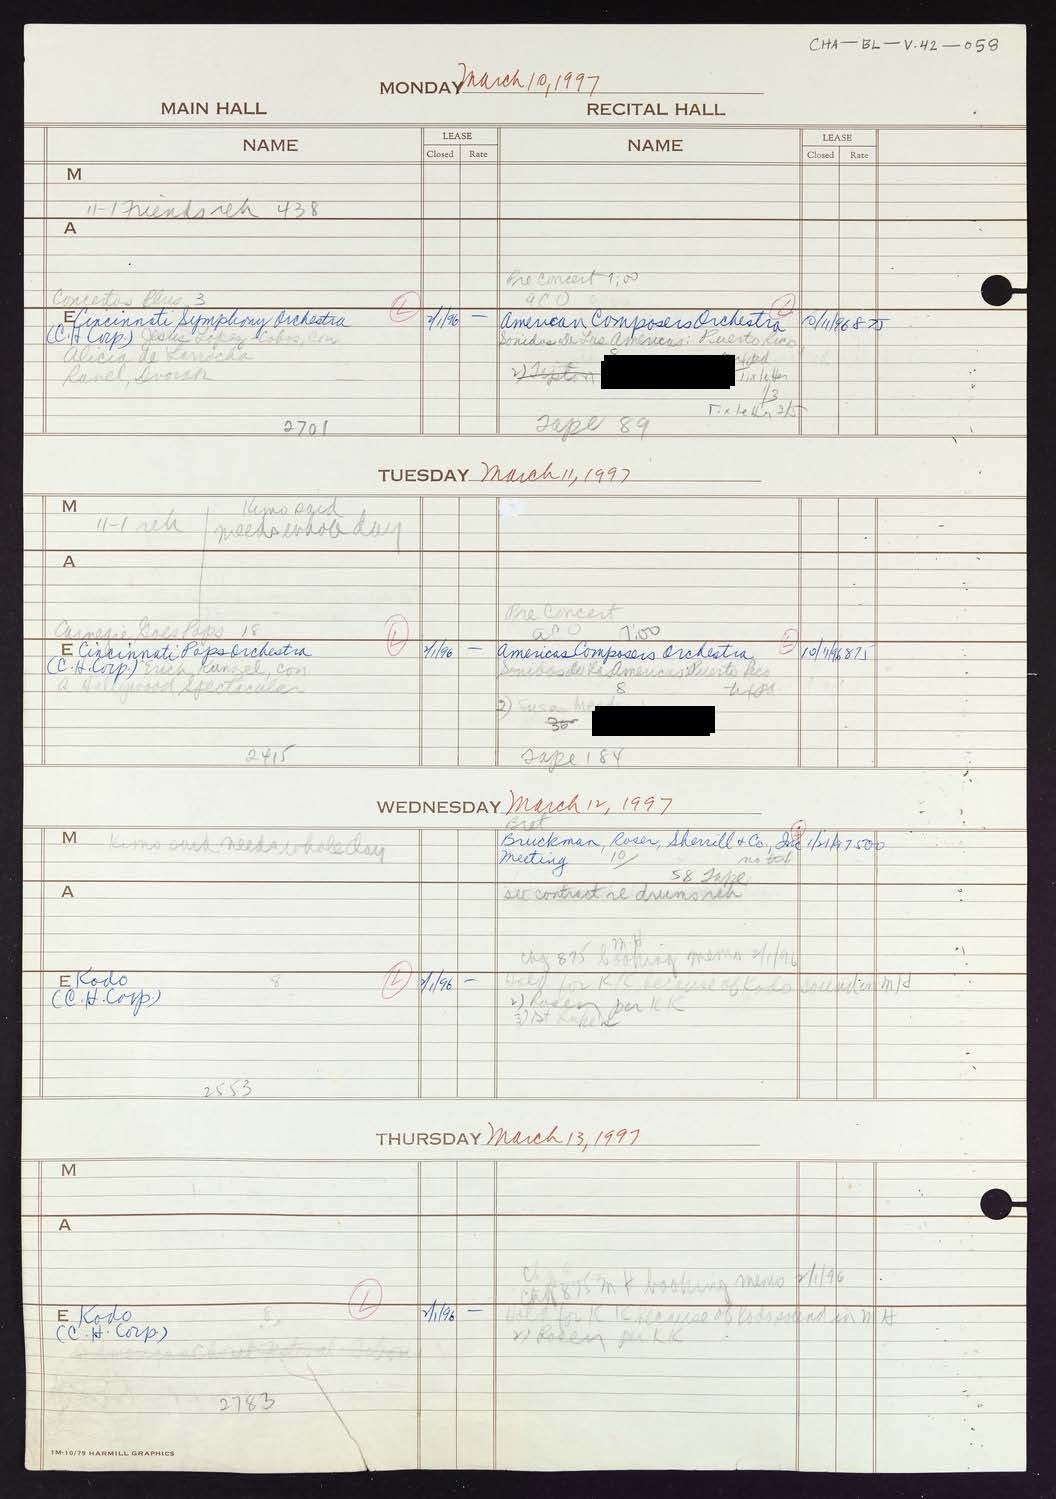 CHA-BL-V.42-058
MONDAY March 10, 1997
MAIN HALL RECITAL HALL
NAME LEASE Closed Rate NAME LEASE Closed Rate
M
11-1 Friends reh 438
A
Pre Concert 7:00
ACO
Concertos Plus 3
E Cincinnati Symphony Orchestra L 2/1/96 — American Composers Orchestra L 10/11/96 875
(C.H. Corp.) Jesús López-Cobos, con Sonidos de Las Americas: Puerto Rico
Alicia de Larrocha 8
Ravel, Dvorak 2)
1/3
2/5
2701 Tape 89
TUESDAY March 11, 1997
M Kimo said
11-1 reh needs whole day
A
Pre Concert
Carnegie Goes Pops 18 ACO 7:00
E Cincinnati Pops Orchestra L 2/1/96 — American Composers Orchestra L 10/11/96 875
(C.H. Corp) Erich Kunzel, con Sonidos de las Americas: Puerto Rico
A Hollywood Spectacular 8
2) Susan
30
2415 Tape 184
WEDNESDAY March 12, 1997
M Kimo said needs whole day Bruckman, Rosser, Sherrill & Co., Inc 1/21/97 500
Meeting 10/ no tab
58 Tape
A see contract re drums reh
M H
chg 875 booking memo 2/1/96
E Kodo 8 L 2/1/96 — Held for K K because of Kodo sound in M H
(C.H. Corp) 2) Rosen per K K
3) 1st
2553
THURSDAY March 13, 1997
M
A
chg 875 M H booking memo 2/1/96
E Kodo 8 L 2/1/96 — Held for K K because of Kodo sound in M H
(C.H. Corp) 2) Rosen per K K
2783
1M-10/79 HARMILL GRAPHICS